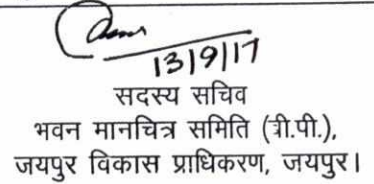 13/9/17
सदस्य सचिव
भवन मानचित्र समिति (बी.पी.),
जयपुर विकास प्राधिकरण, जयपुर।